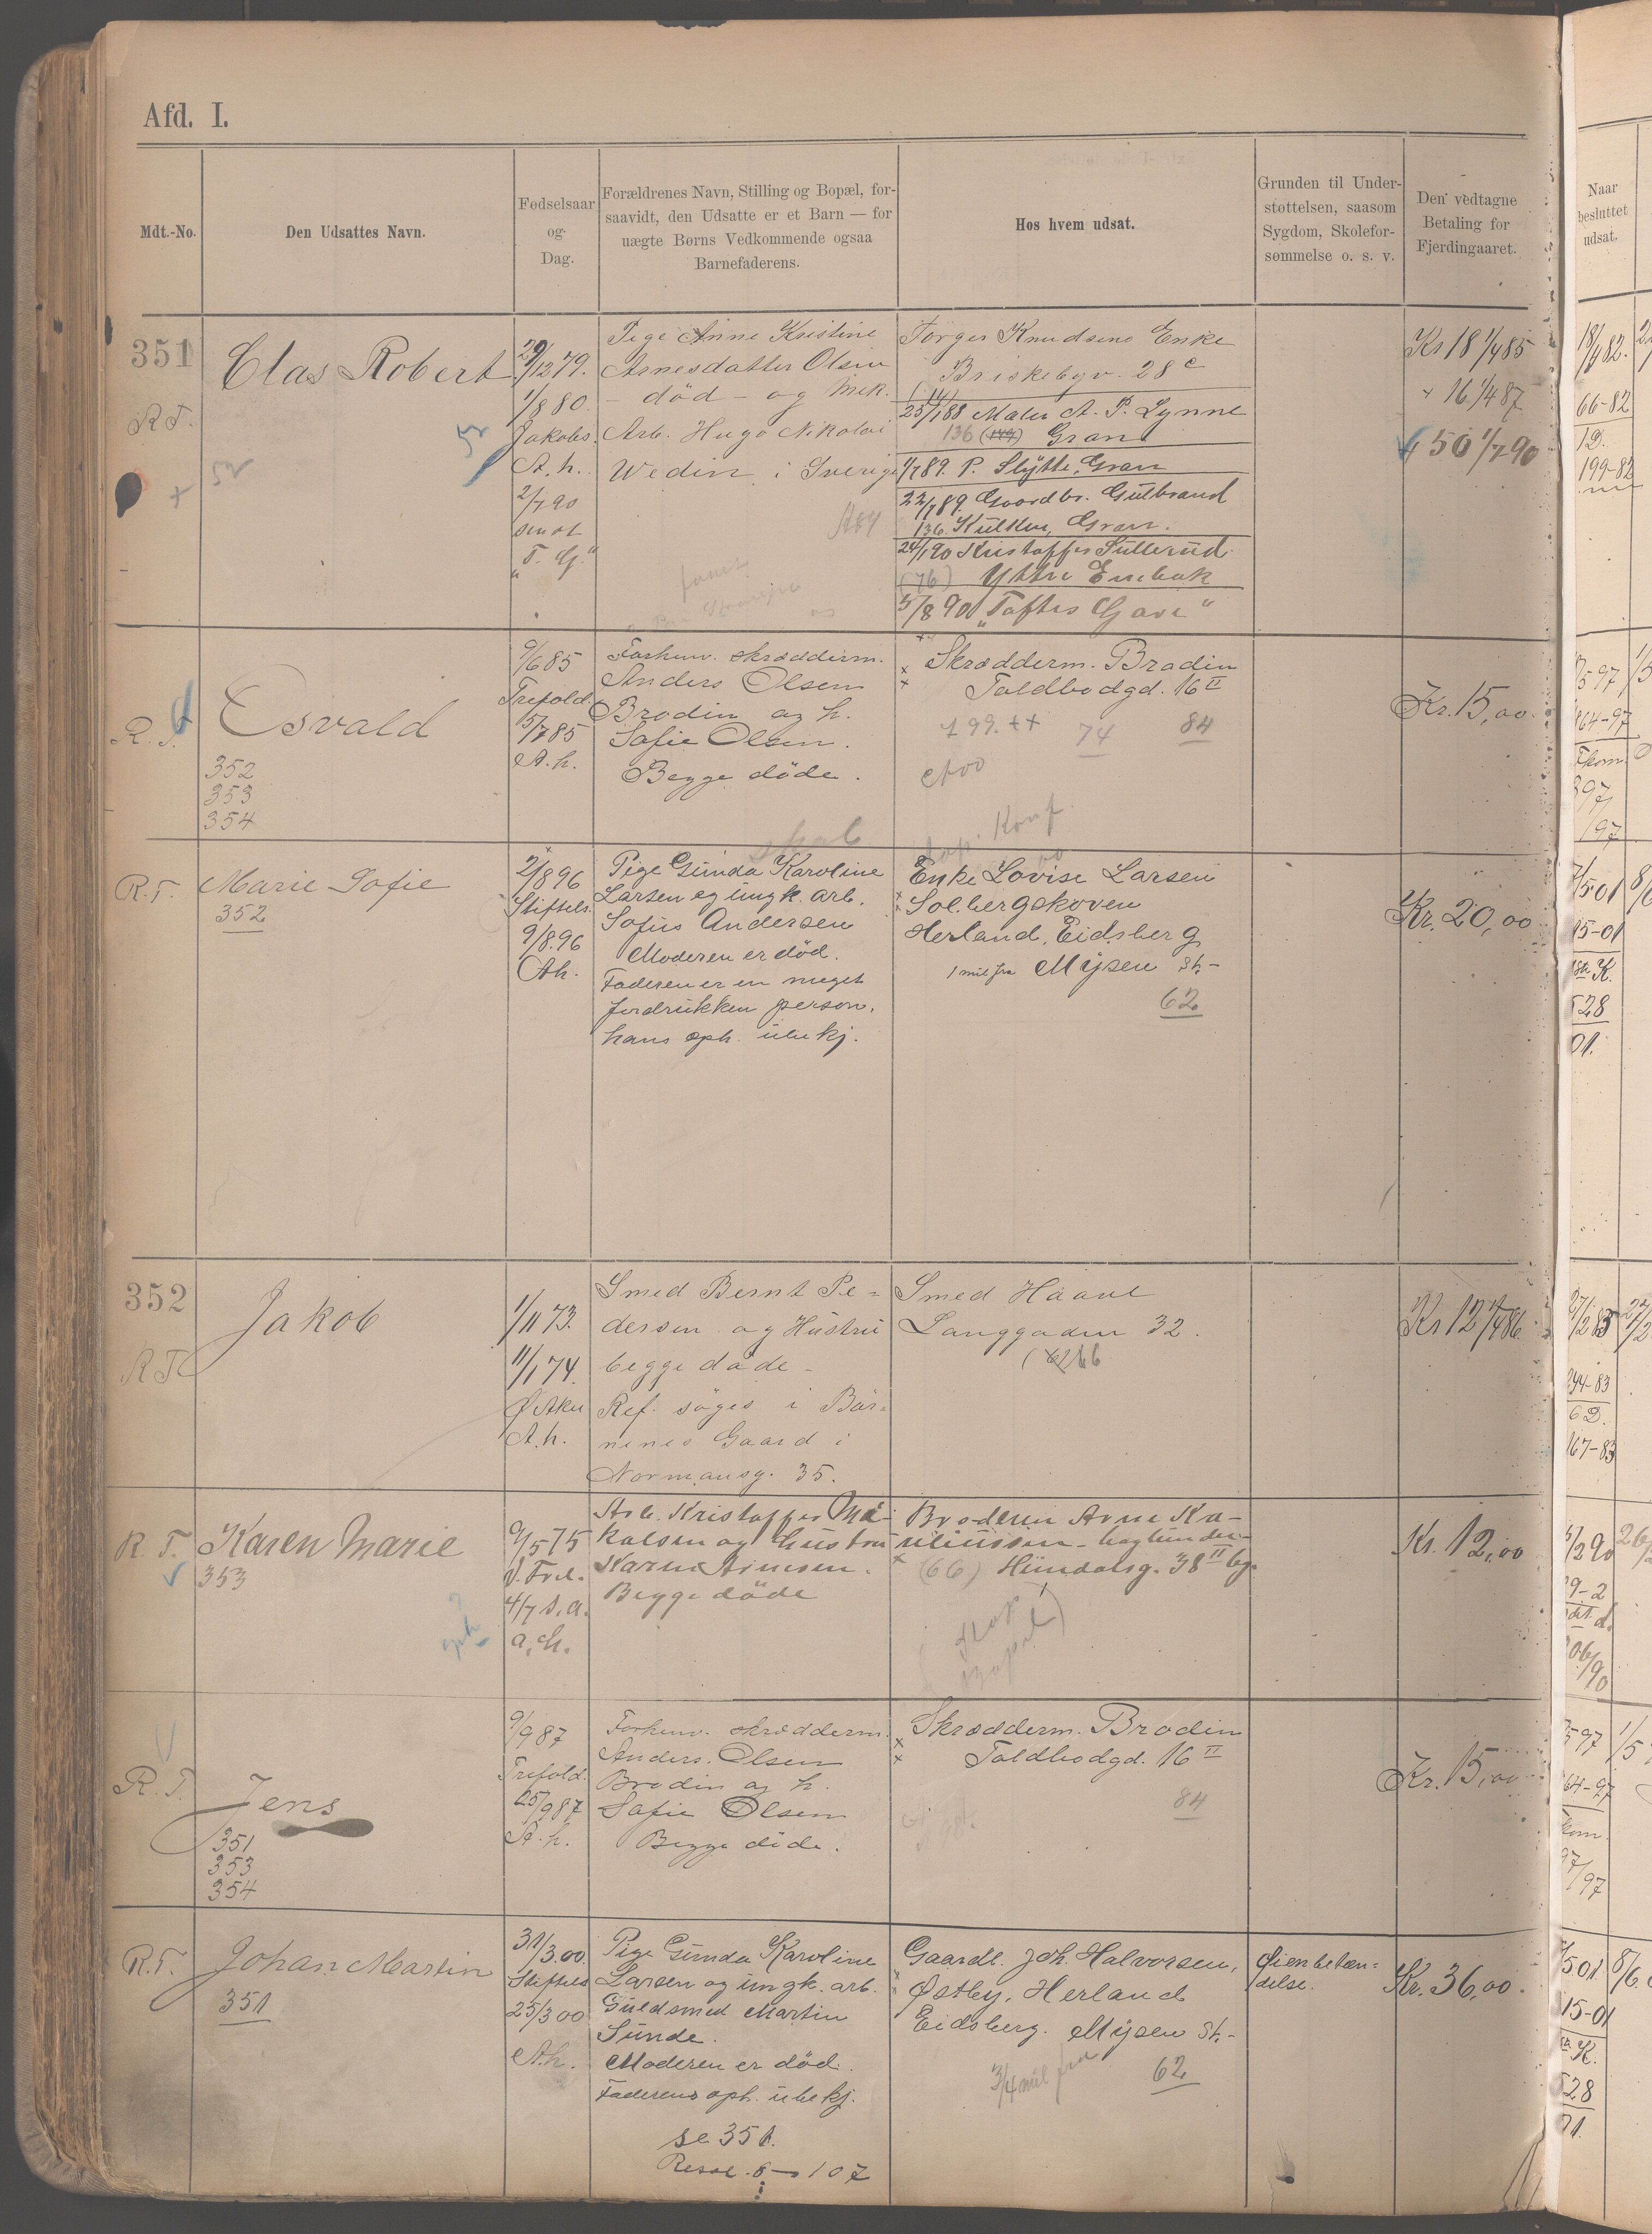 Afd. I.
Mdt.-No.
Den Udsattes Navn.
Fødselsaar
og
Dag.
Forældrenes Navn, Stilling og Bopæl, for-
saavidt, den Udsatte er et Barn — for
uægte Børns Vedkommende ogsaa
Barnefaderens.
Hos hvem udsat.
Grunden til Under-
støttelsen, saasom
Sygdom, Skolefor-
sømmelse o. s. v.
Den vedtagne
Betaling for
Fjerdingaaret.
Naar
besluttet
udsat.
351
R.T.
Clas Robert
29/12 79.
1/8 80.
Jakobs.
A. h.
2/7 90
"T. G."
Pige Anne Kristine
Arnesdatter Olsen
- död - og Mek.
Arb. Hugo Nikolai
Wedin i Sverige
Torger Knudsens Enke
Briskebyv. 28 c
25/1 88 Maler A. P. Lynne
136 Gran
1/7 89. P. Slytte, Gran
22/7 89. Gaardbr. Gulbrand
136. Gran.
24/1 90 Kristoffer Sullerud
(76) Yttre Enebak
5/8 90 "Toftes Gave"
Kr 18 1/4 85
" 16 1/4 87
" 50 1/7 90
18/4 82.
66-82
199-82
R. T.
Esvald
352
353
354
9/6 85
Trefold.
5/7 85
A. h.
Forhenv. skrædderm.
Anders Olsen
Brodin og h.
Sofie Olsen.
Begge döde.
Skrædderm. Brodin
Toldbodgd. 16 II
74
84
Kr. 15,00.
R.T.
Marie Sofie
352
2/8 96
Stiftels.
9/8 96
Ah.
Pige Gunda Karoline
Larsen og ungk. arb.
Sofus Andersen
Moderen er död.
Faderen er en meget
fordrukken person,
hans oph. ubekj.
Enke Lovise Larsen
Solbergskoven
Herland, Eidsberg
1 mil fra Mysen st.-
62
Kr. 20,00
352
R.T.
Jakob
1/11 73.
11/1 74.
A. h.
Smed Bernt Pe-
dersen og Hustru
begge döde -
Ref. söges i Bör-
nenes Gaard i
Normansg. 35.
Smed Haave
Langgaden 32.
Kr 12 1/4 86
R. T.
Karen Marie
353
9/5 75
4/7 s.a.
a. h.
Arb. Kristoffer
og hustru
Karen Arnesen.
Begge döde
Broderen Arne
(66) Hundalsg. 38 II
Kr. 12,00
R. T.
Jens
351
353
354
9/9 87
Trefold.
25/9 87
A. h.
Forhenv. skrædderm.
Anders Olsen
Brodin og h.
Sofie Olsen
Begge döde.
Skrædderm. Brodin
Toldbodgd. 16 II
84
Kr. 15,00
R.T.
Johan Martin
351
31/3 00.
Stiftels
25/3 00
A.h.
Pige Gunda Karoline
Larsen og ungk. arb.
Guldsmed Martin
Sunde.
Moderen er död.
Faderens oph. ubekj.
se 351.
Gaardl. Joh. Halvorsen,
Østby, Herland
Eidsberg. Mysen st.-
3/4 mil fra
62
Øienbetæn-
delse.
Kr. 36,00.